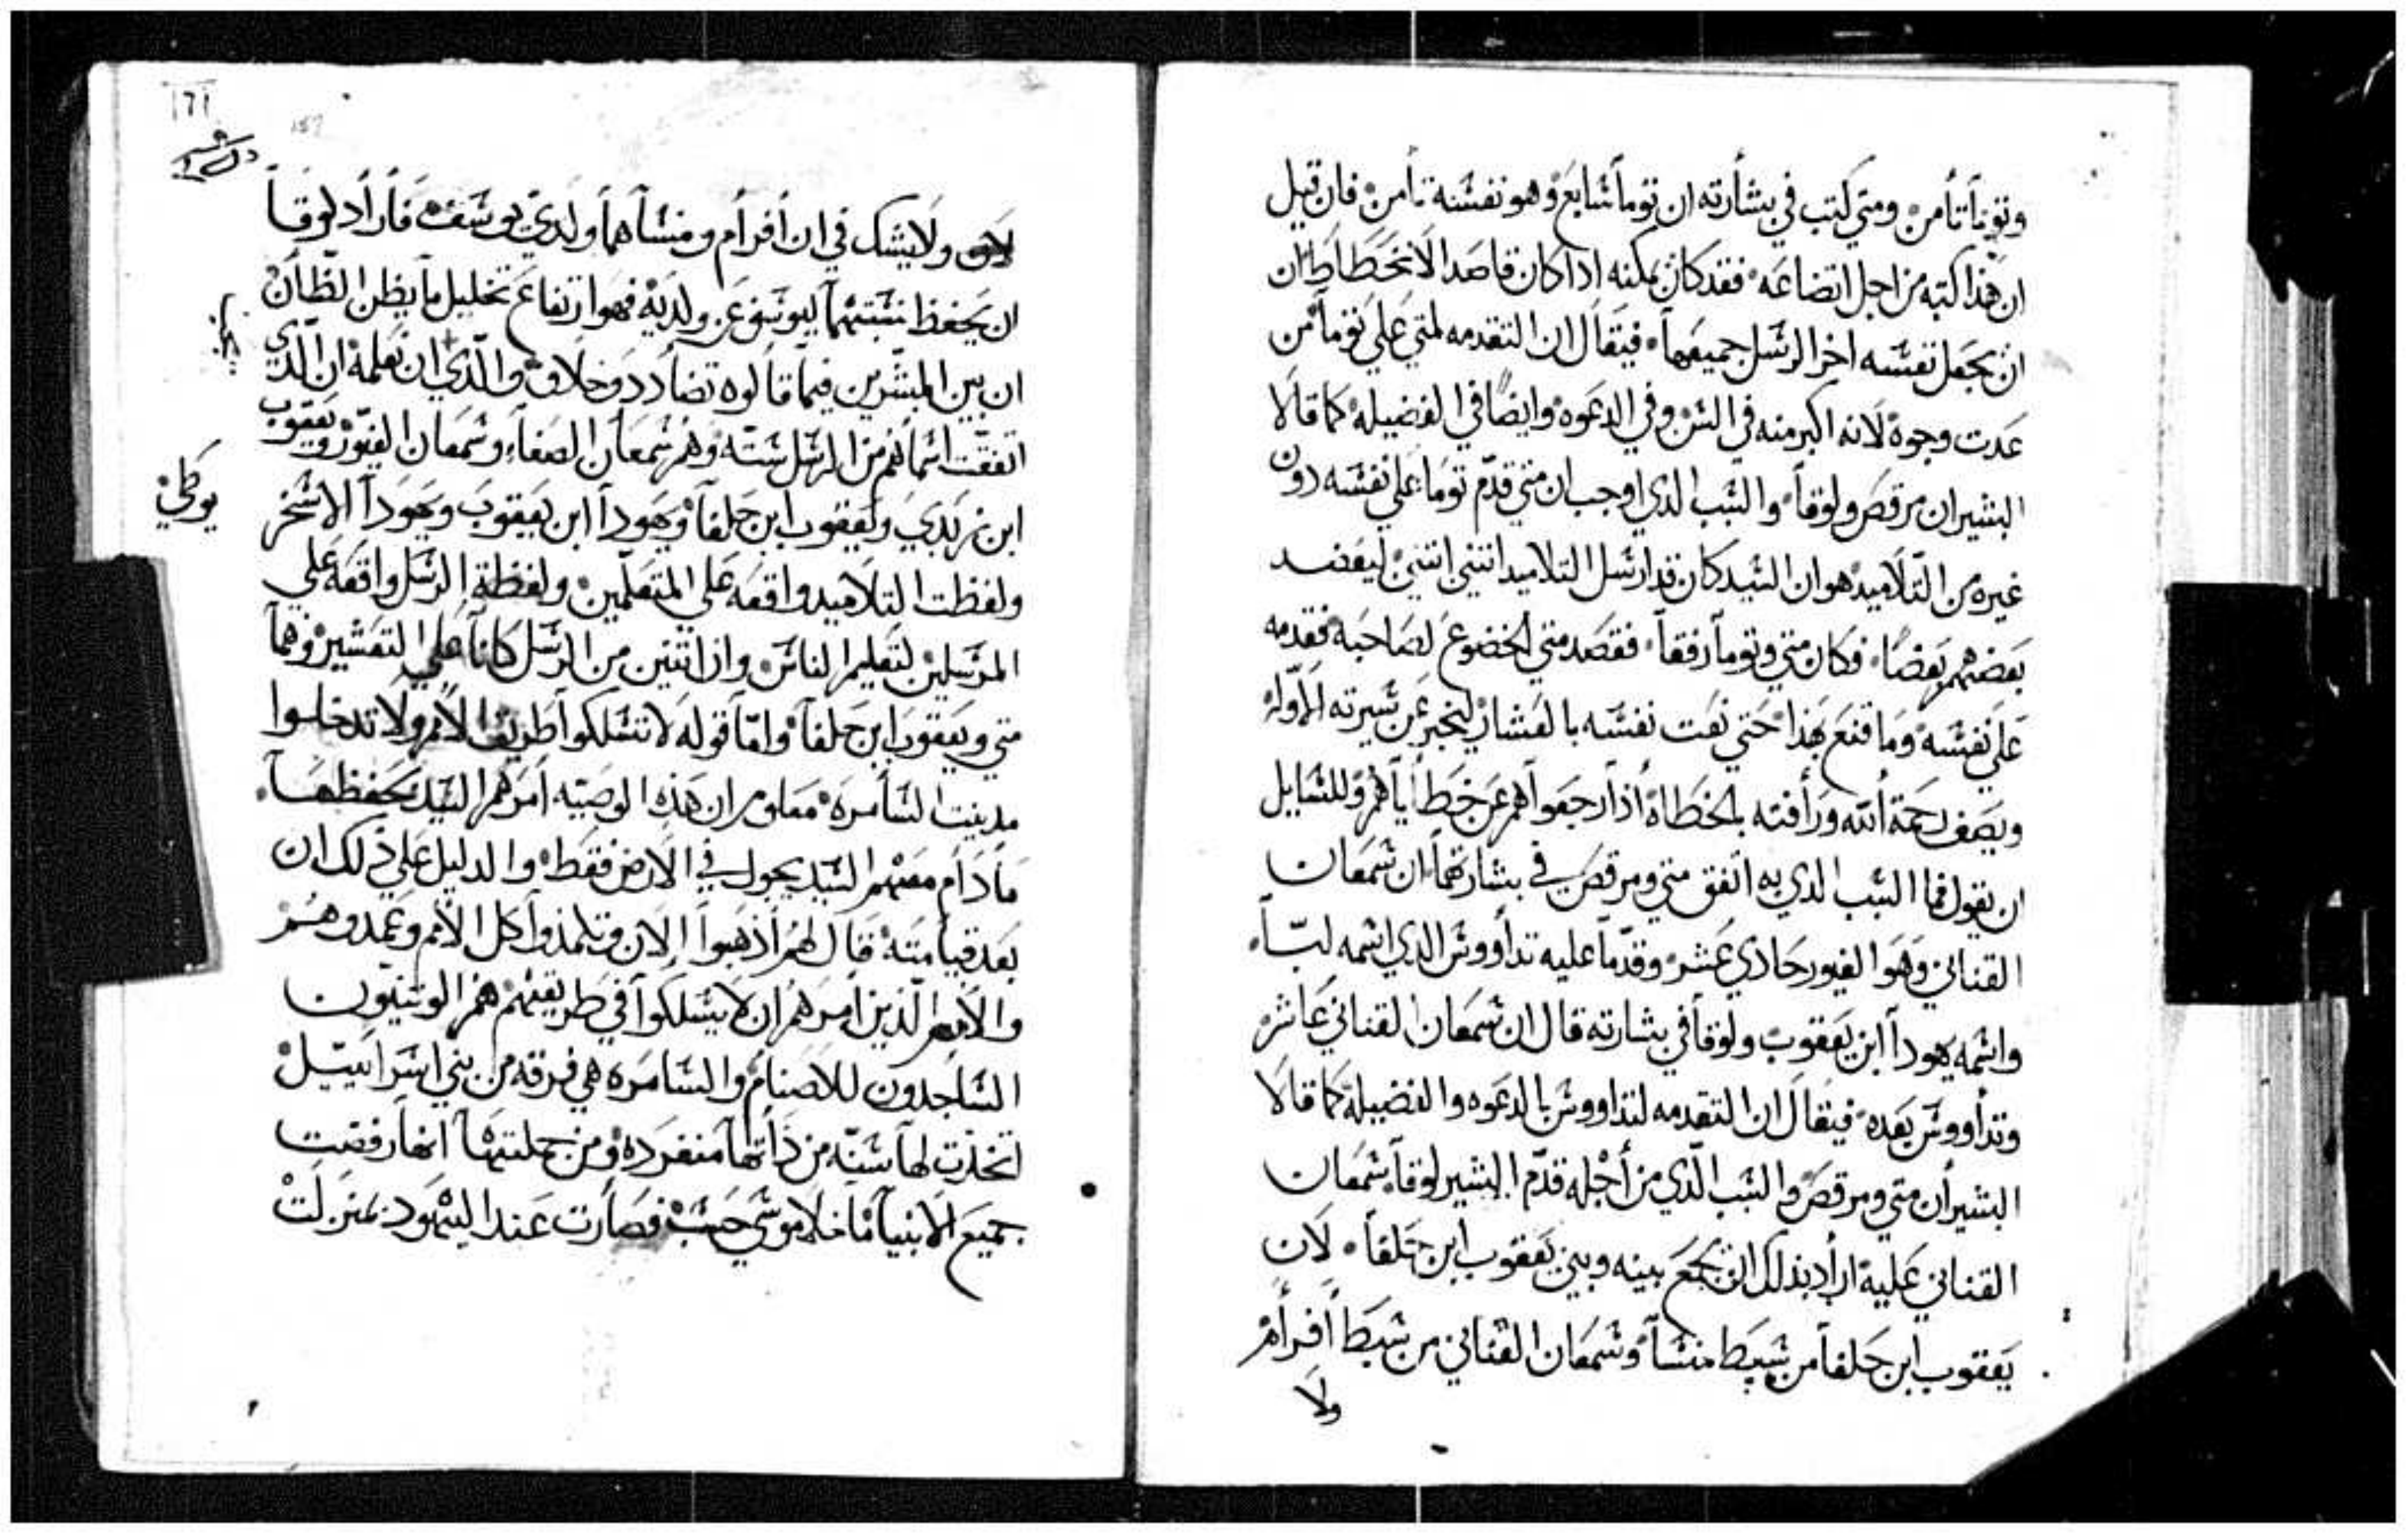 وتوما تامن ومتي كتب في بشارته ان توما سابع وهو نفسه تامن فان قيل
ان هذا كتبه من اجل اتضاعه فقد كان يمكنه ادا كان قاصد الانخطاط ان
ان يجعل نفسه اخر الرسل جميعهما فيقال ان التقدمه لمتي علي توما من
عدت وجوة لانه اكبر منه في السن وفي الدعوه وايضا في الفضيله كما قالا
البشيران مرقص ولوقا والسبب الدي اوجب ان متي قدم توما علي نفسه دون
غيره من التلاميد هو ان السيد كان قد ارسل التلاميد اتنني اتنني ليعضد
بعضهم بعضا فكان متي وتوما رفقا فقصد متي الخضوع لصاحبه فقدمه
علي نفسه وما قنع بهذا حتي نعت نفسه بالعشار ليخبر عن سيرته الاوله
ويصف رحمة الله ورافته بالخطاة اذا رجعوا هم عن خطاياهم وللسايل
ان يقول فما السبب الدي به اتفق متي ومرقص في بشارتهما ان سمعان
القناني وهو الغيور حادي عشر وقدما عليه تداووس الدي اسمه لبا
واسمه يهودا ابن يعقوب ولوقا في بشارته قال ان سمعان القناني عاشر
وتداووس بعده فيقال ان التقدمه لتداووس بالدعوه والفضيلة كما قالا
البشيران متي ومرقص والسبب الذي من اجله قدم البشير لوقا سمعان
القناني عليه اراد بذلك ان يجمع بينه وبين يعقوب ابن حلفا لان
يعقوب ابن حلفا من سبط منسا وسمعان القناني من سبط افرام
ولا
ولا يشك في ان افرام ومنسا هما ولدي يوسف فاراد لوقا
ان يحفظ نسبتهما ليوسف عن ولديه فهو ارتفاع تخليل ما يظن الظان
ان بين المبشرين فيما قالوه تضادد وخلاف والذي ان نعلمه ان الدي
اتفقت اسماهم من الرسل سته وهم سمعان الصفا وسمعان الغيور ويعقوب
ابن زبدي ويعقوب ابن حلفا ويهودا ابن يعقوب ويهودا الاسخر
يوطي
ولفظت التلاميد واقعه علي المتعلمين ولفظة الرسل واقعه علي
المرسلين لتعليم الناس وان اتنين من الرسل كانا علي التعشير وهما
متي ويعقوب ابن حلفا واما قوله لا تسلكوا طريق الامم ولا تدخلوا
مدينت السامره معلوم ان هذه الوصيه امرهم السيد بحفظها
ما دام معهم السيد يجول في الارض فقط والدليل علي ذلك ان
بعد قيامته قال لهم اذهبوا الان وتلمذوا كل الامم وعمدوهم
والامم الذين امرهم ان لا يسلكوا في طريقهم هم الوتنيون
الساجدون للاصنام والسامره هي فرقه من بني اسراييل
اتخذت لها سنه من ذاتها منفرده ومن جملتها انها رفضت
جميع الانبيا ما خلا موسي حسب فصارت عند اليهود بمنزلت